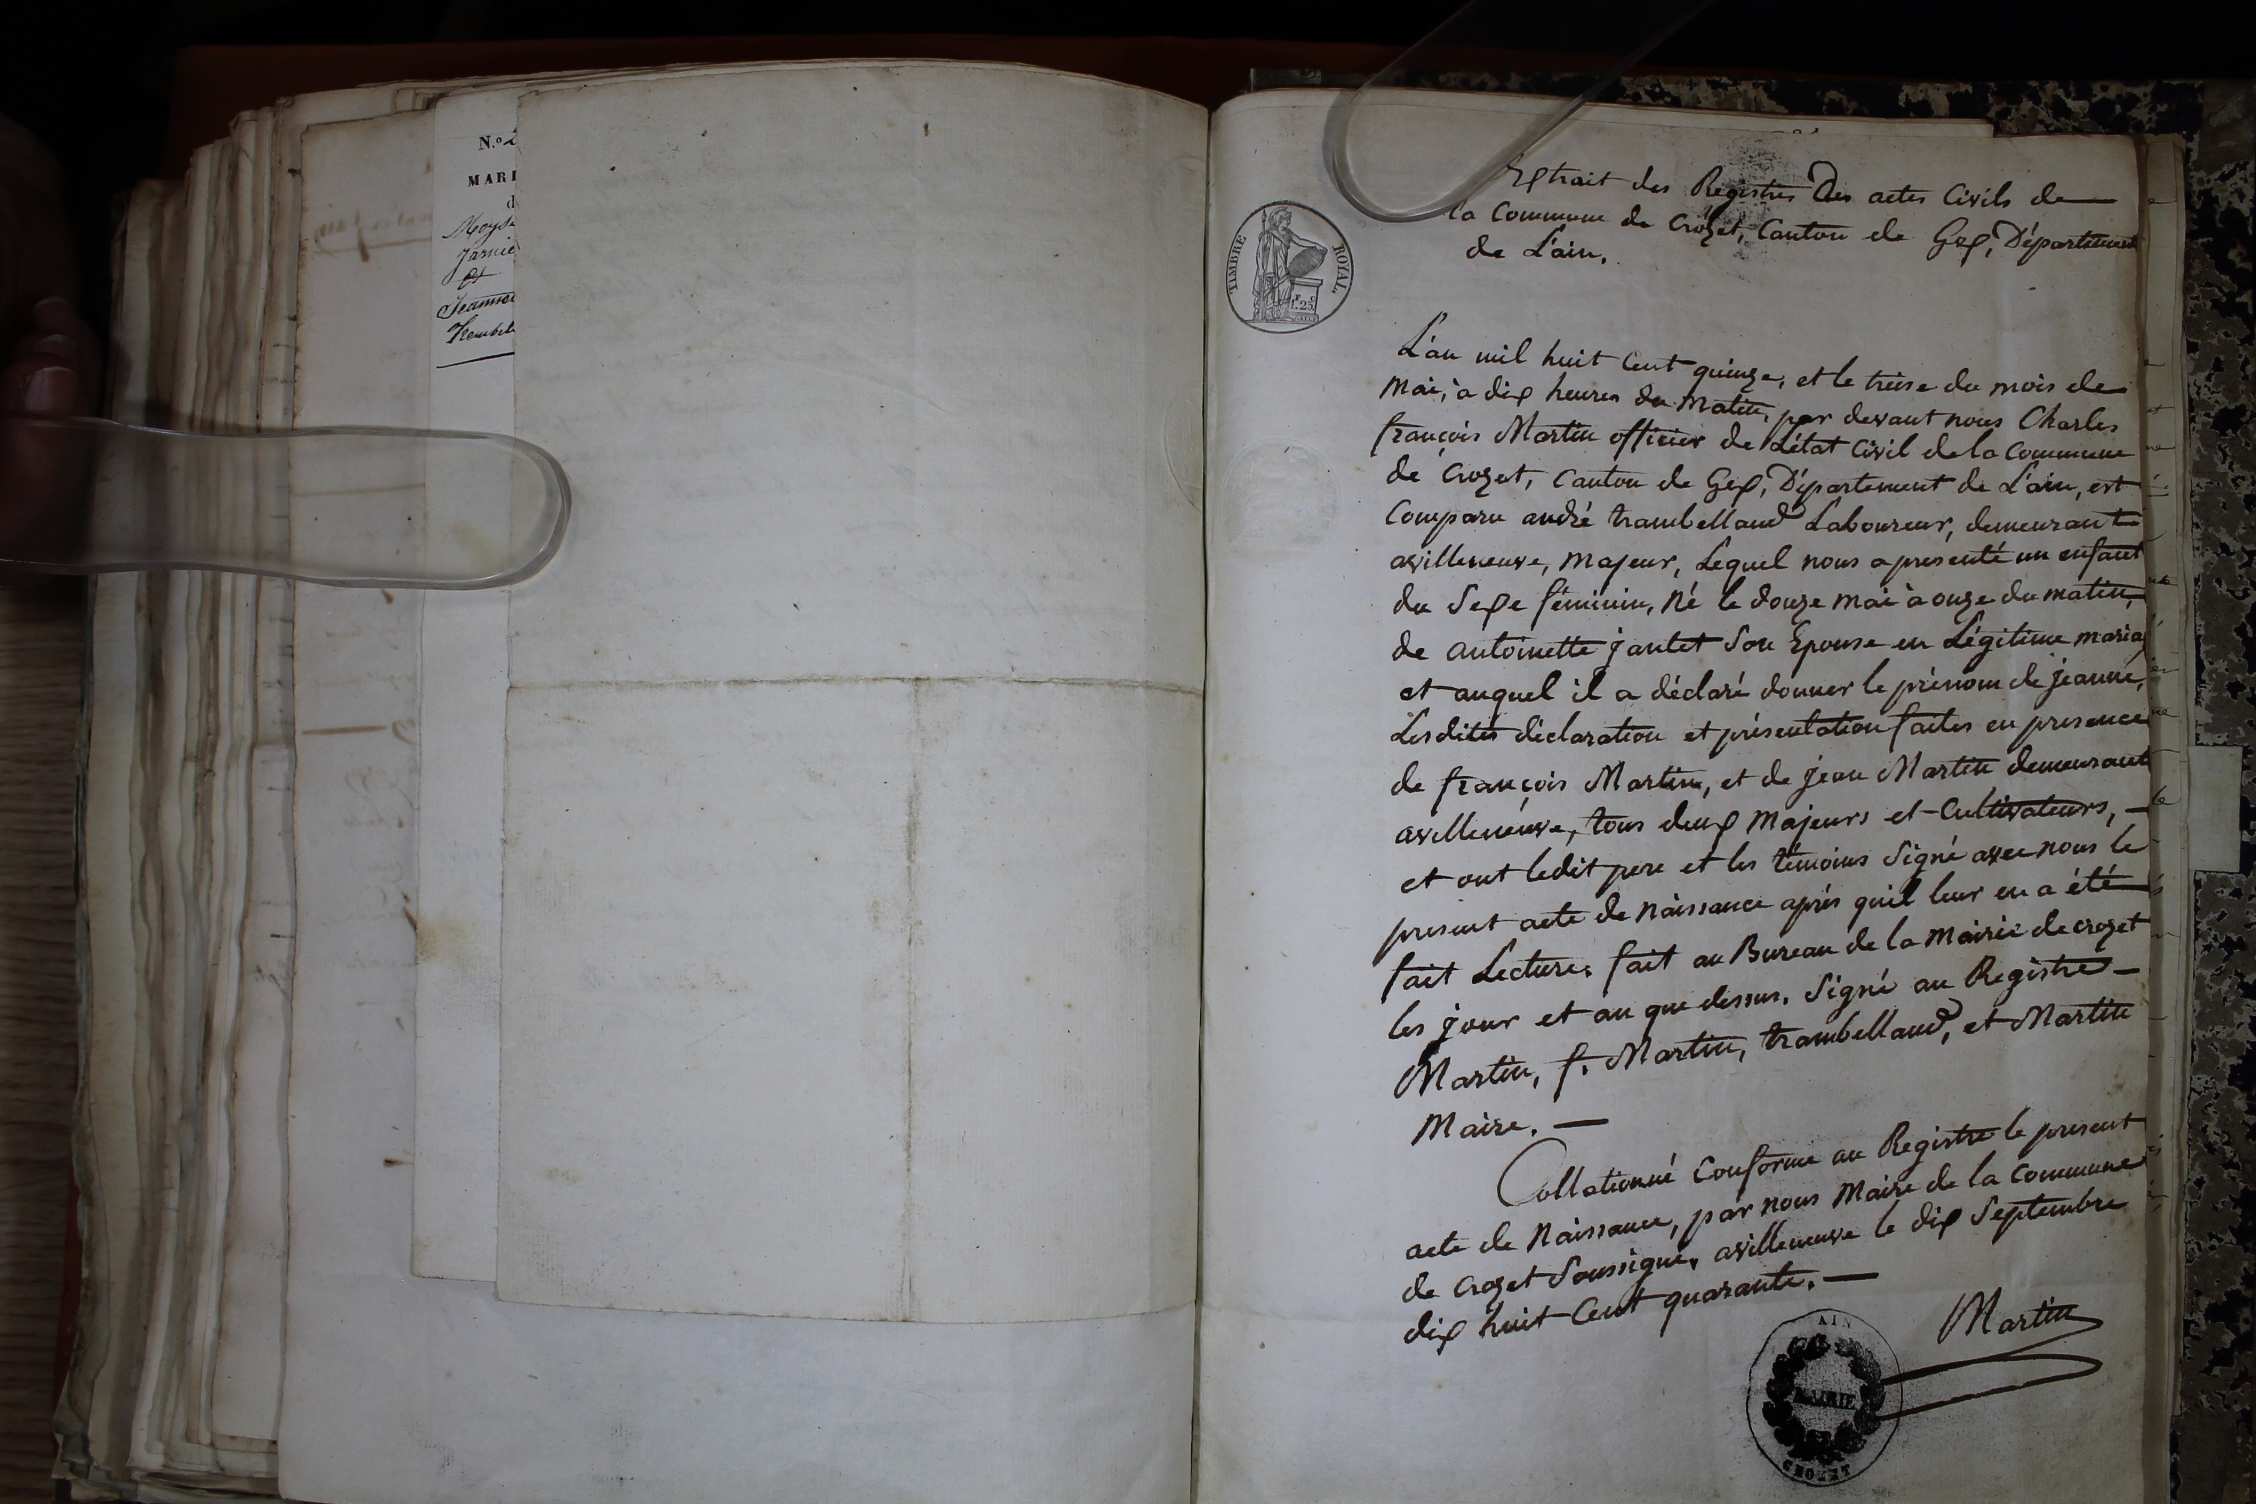 N.o 2
MARI
d
Moyse
Jarnie
et
Jeanne
Trembl
TIMBRE ROYAL
1.25
Extrait des Registres Des actes Civils de
la Commune de Crozet, Canton de Gex, Département
de L'ain.
L'an mil huit Cent quinze, et le treise du mois de
Mai, à dix heures du Matin, par devant nous Charles
françois Martin officier de L'état Civil de la Commune
de Crozet, Canton de Gex, Département de L'ain, est
Comparu andré trambelland Laboureur, demeurant
avilleneuve, Majeur, Lequel nous a presenté un enfant
du Sexe féminin, Né le douze mai à onze du matin,
de antoinette jantet Son Epouse en Légitime mariag
et auquel il a déclaré donner le prénom de jeanne,
Lesdites déclaration et présentation faites en presence
de françois Martin, et de jean Martin demeurant
avilleneuve, tous deux Majeurs et Cultivateurs,
et ont ledit pere et les témoins Signé avec nous le
present acte de Naissance après quil leur en a été
fait Lecture. fait au Bureau de la Mairie de crozet
les jour et an que dessus. Signé au Registre
Martin, f. Martin, trambelland, et Martin
Maire.
Collationné Conforme au Registre le present
acte de Naissance, par nous Maire de la Commune
de Crozet Soussigné, avilleneuve le dix Septembre
dix huit Cent quarante.
Martin
AIN
MAIRIE
CROZET